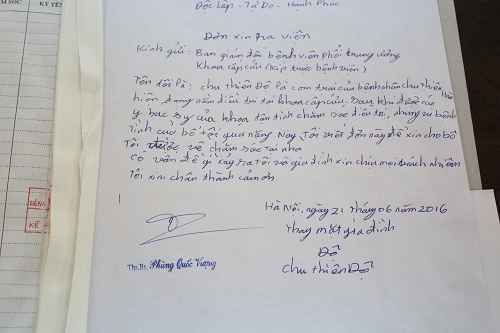 SÓC
KÝ TÊN
Độc Lập - Tự Do - Hạnh Phúc
Đơn xin ra viện
Kính gửi: Ban giám đốc bệnh viện Phổi trung ương
Khoa cấp cứu (Kíp trực bệnh viện)
Tên tôi là: chu thiện Độ là con trai của bệnh nhân chu Thiện
hiện đang nằm điều trị tại khoa cấp cứu. Sau khi được các
y bác sỹ của khoa tận tình chăm sóc điều trị, nhưng vì bệnh
tình của bố tôi quá nặng Nay Tôi viết đơn này để xin cho bố
Tôi được về chăm sóc tại nhà
Có vấn đề gì xảy ra Tôi và gia đình xin chịu mọi trách nhiệm
Tôi xin chân thành cảm ơn
Hà Nội, ngày 21 tháng 06 năm 2016
thay mặt gia đình
Độ
Chu thiện Độ
Ths.Bs. Phùng Quốc Vượng
BỆNH
KẾ